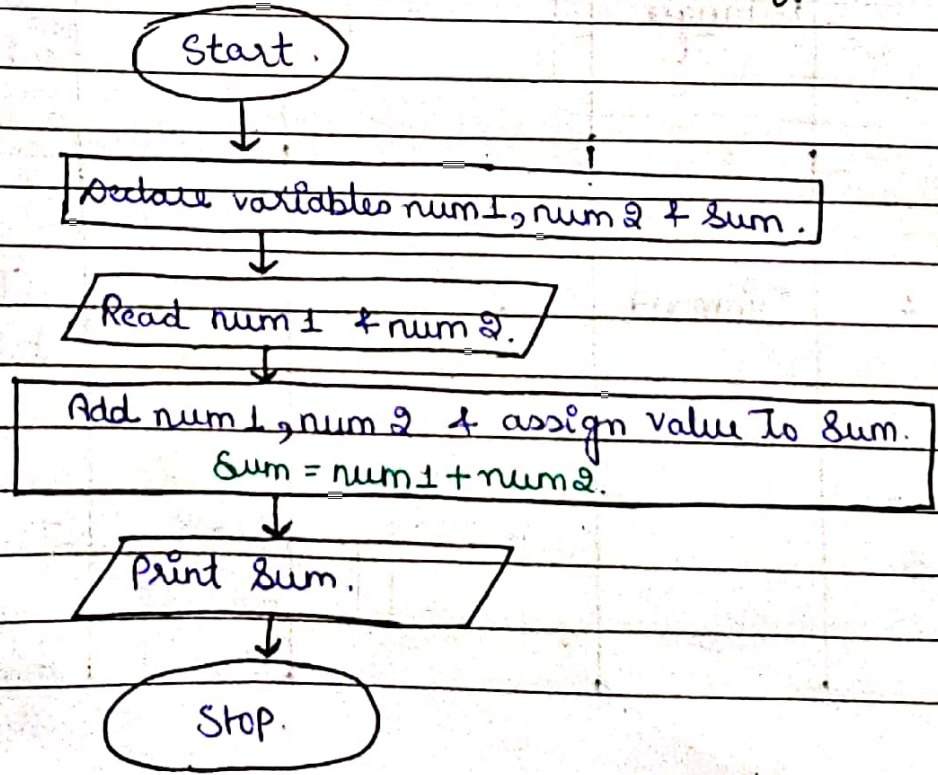 Start.
Declare variables num1, num2 & Sum.
Read num1 & num2.
Add num1, num2 & assign value To Sum.
Sum = num1+num2.
Print Sum.
Stop.